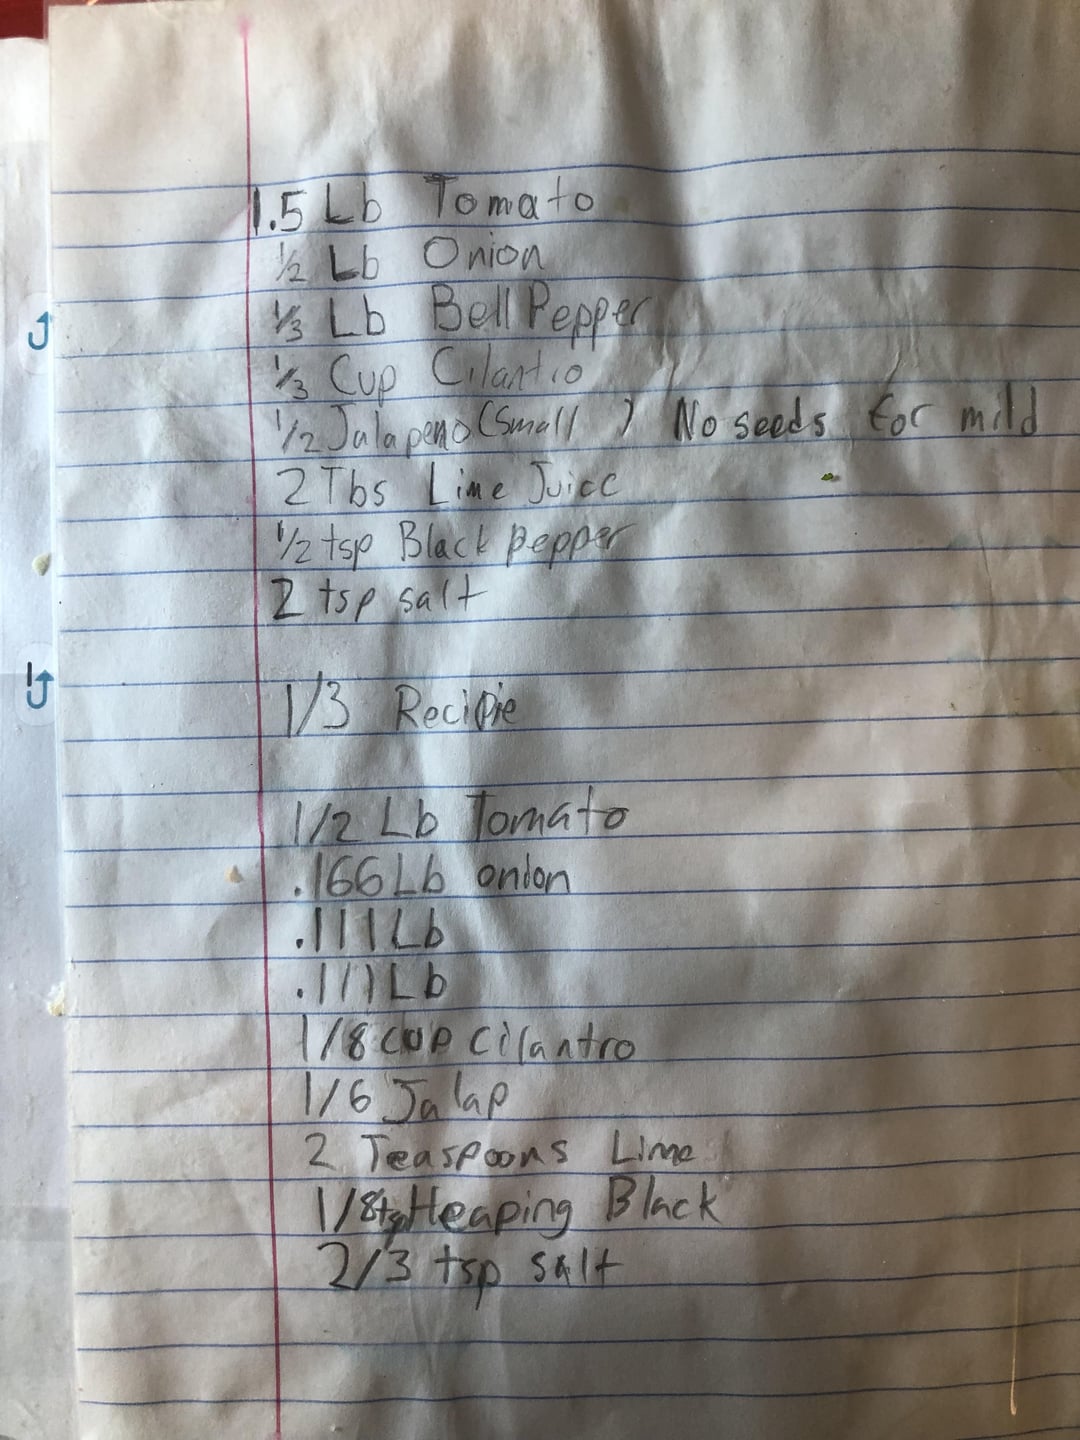 1.5 Lb Tomato
1/2 Lb Onion
1/3 Lb Bell Pepper
1/3 Cup Cilantro
1/2 Jalapeno (Small ) No seeds for mild
2 Tbs Lime Juice
1/2 tsp Black pepper
2 tsp salt
1/3 Recipie
1/2 Lb Tomato
.166 Lb onion
.111 Lb
.111 Lb
1/8 cup cilantro
1/6 Jalap
2 Teaspoons Lime
1/8 tsp Heaping Black
2/3 tsp salt